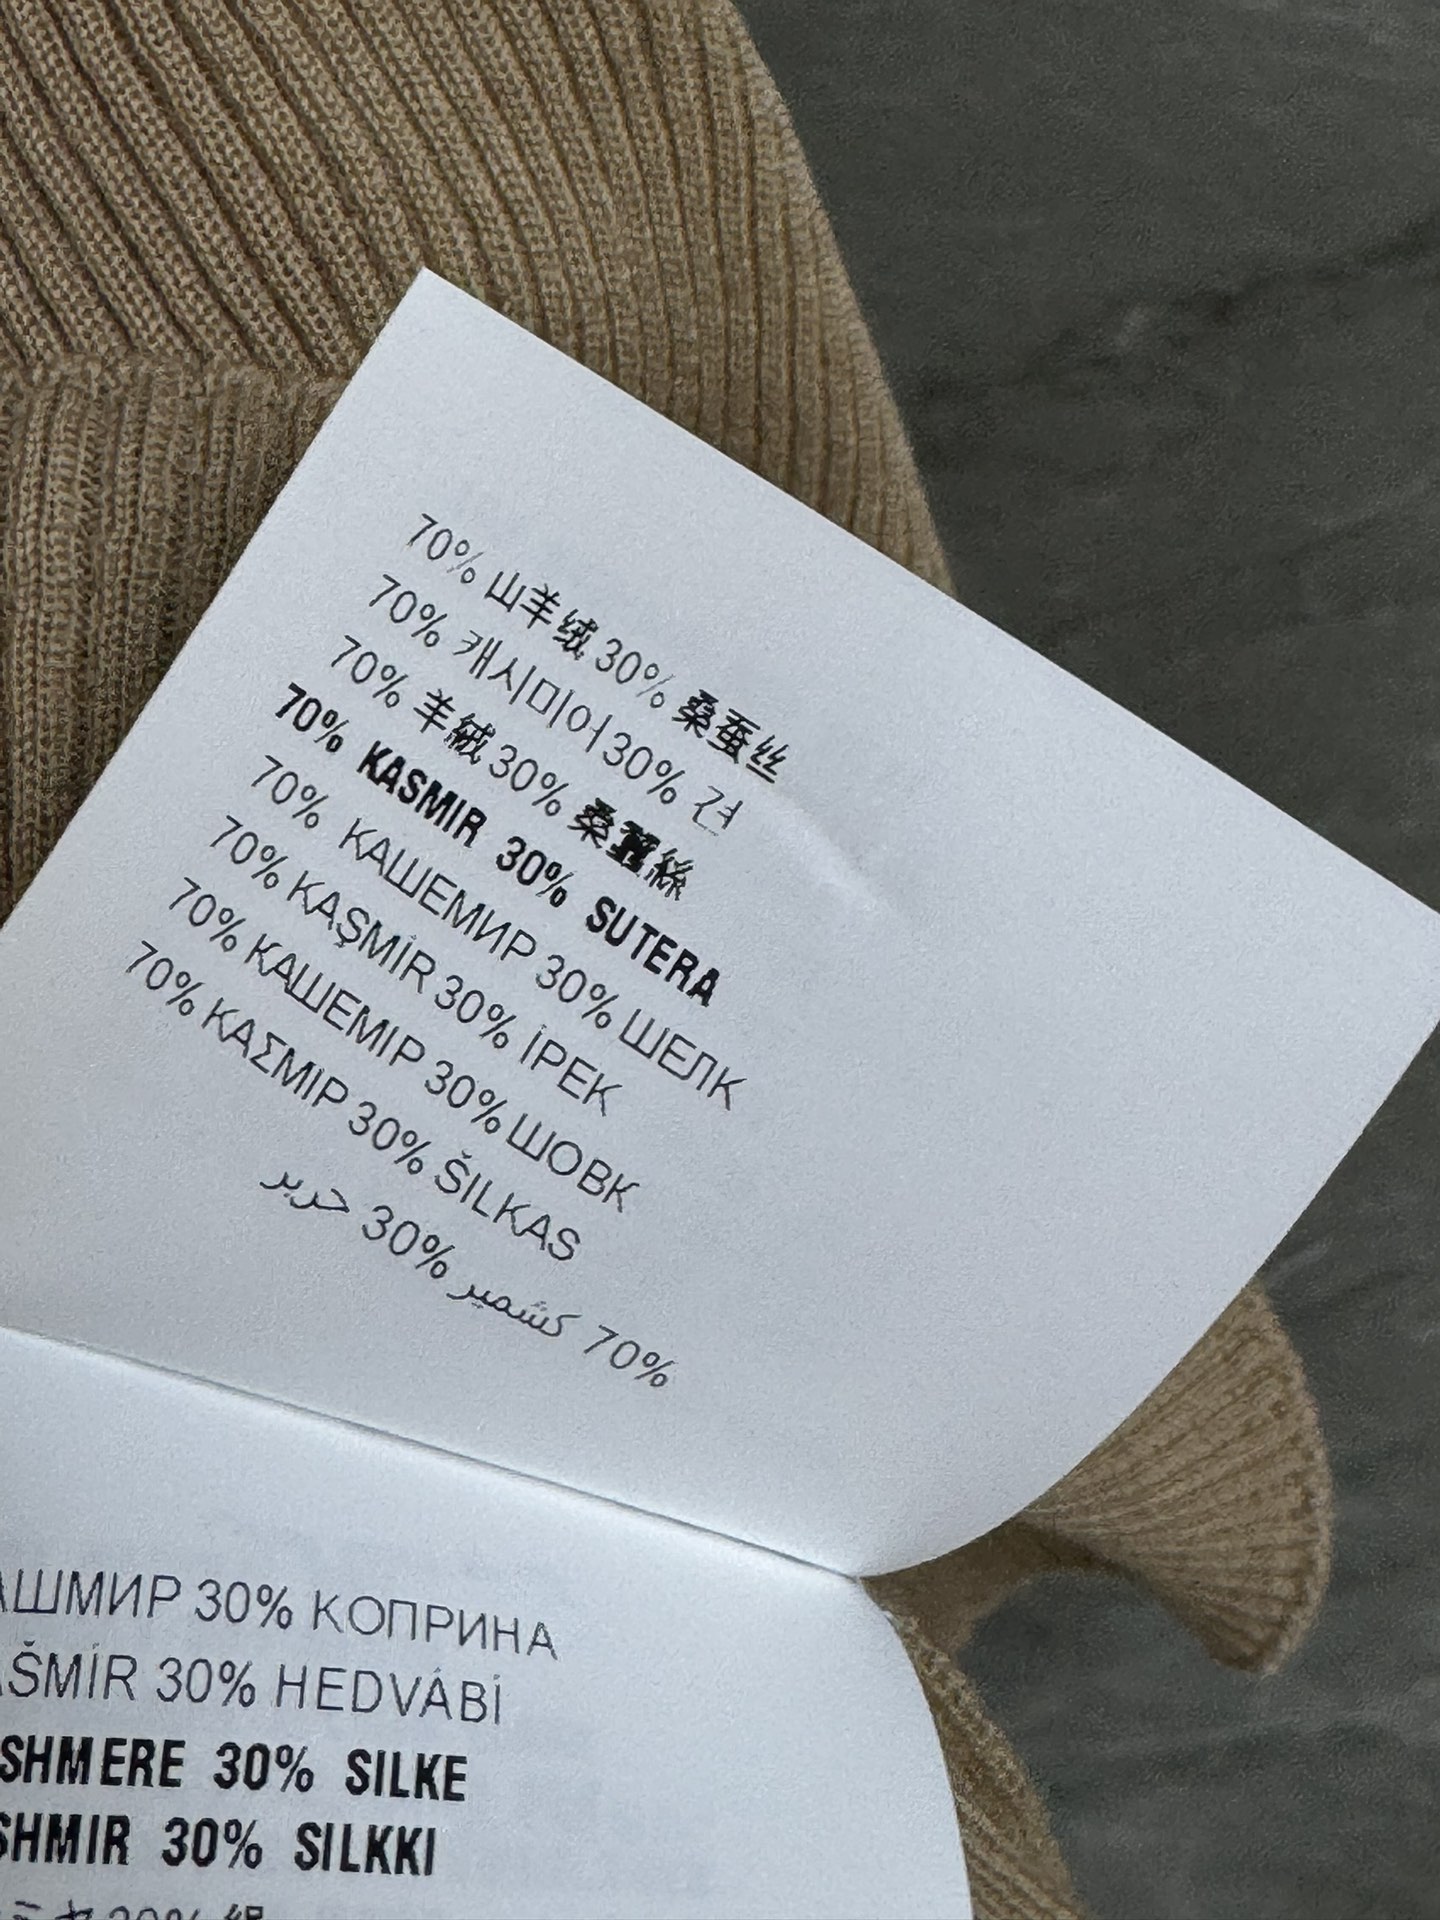 70% 山羊绒 30% 桑蚕丝
70% 캐시미어 30% 견
70% 羊絨 30% 桑蠶絲
70% KASMIR 30% SUTERA
70% КАШЕМИР 30% ШЕЛК
70% KAŞMİR 30% İPEK
70% КАШЕМІР 30% ШОВК
70% ΚΑΣΜΙΡ 30% ŠILKAS
70% كشمير 30% حرير
АШМИР 30% КОПРИНА
AŠMÍR 30% HEDVÁBÍ
SHMERE 30% SILKE
SHMIR 30% SILKKI
ミヤ 30% 絹